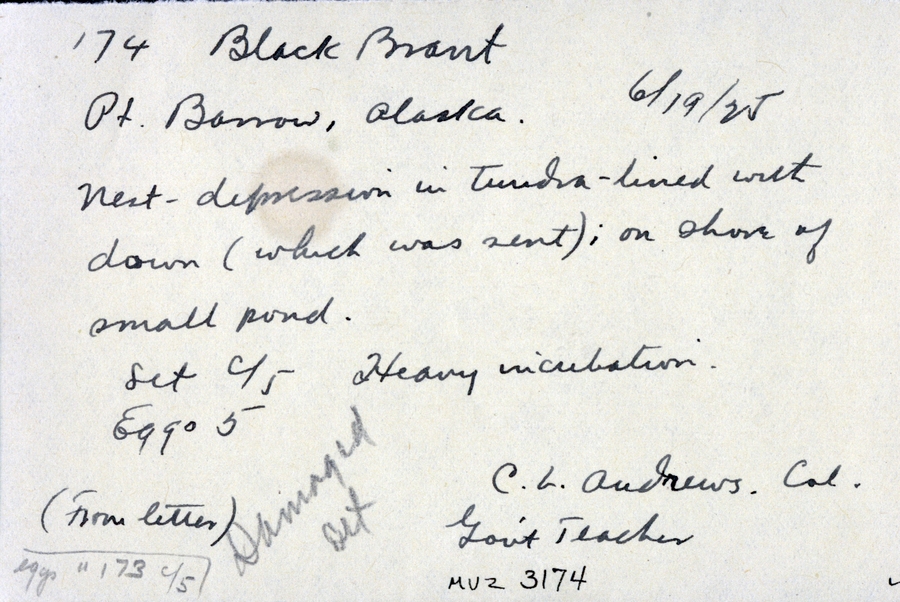 174 Black Brant
Pt. Barrow, Alaska. 6/19/25
Nest - depression in tundra - lined with
down (which was sent); on shore of
small pond.
Set c/5 Heavy incubation.
Eggs 5
Damaged
set
C. L. Andrews. Col.
(From letter)
Gov't Teacher
eggs " 173 c/5
MVZ 3174